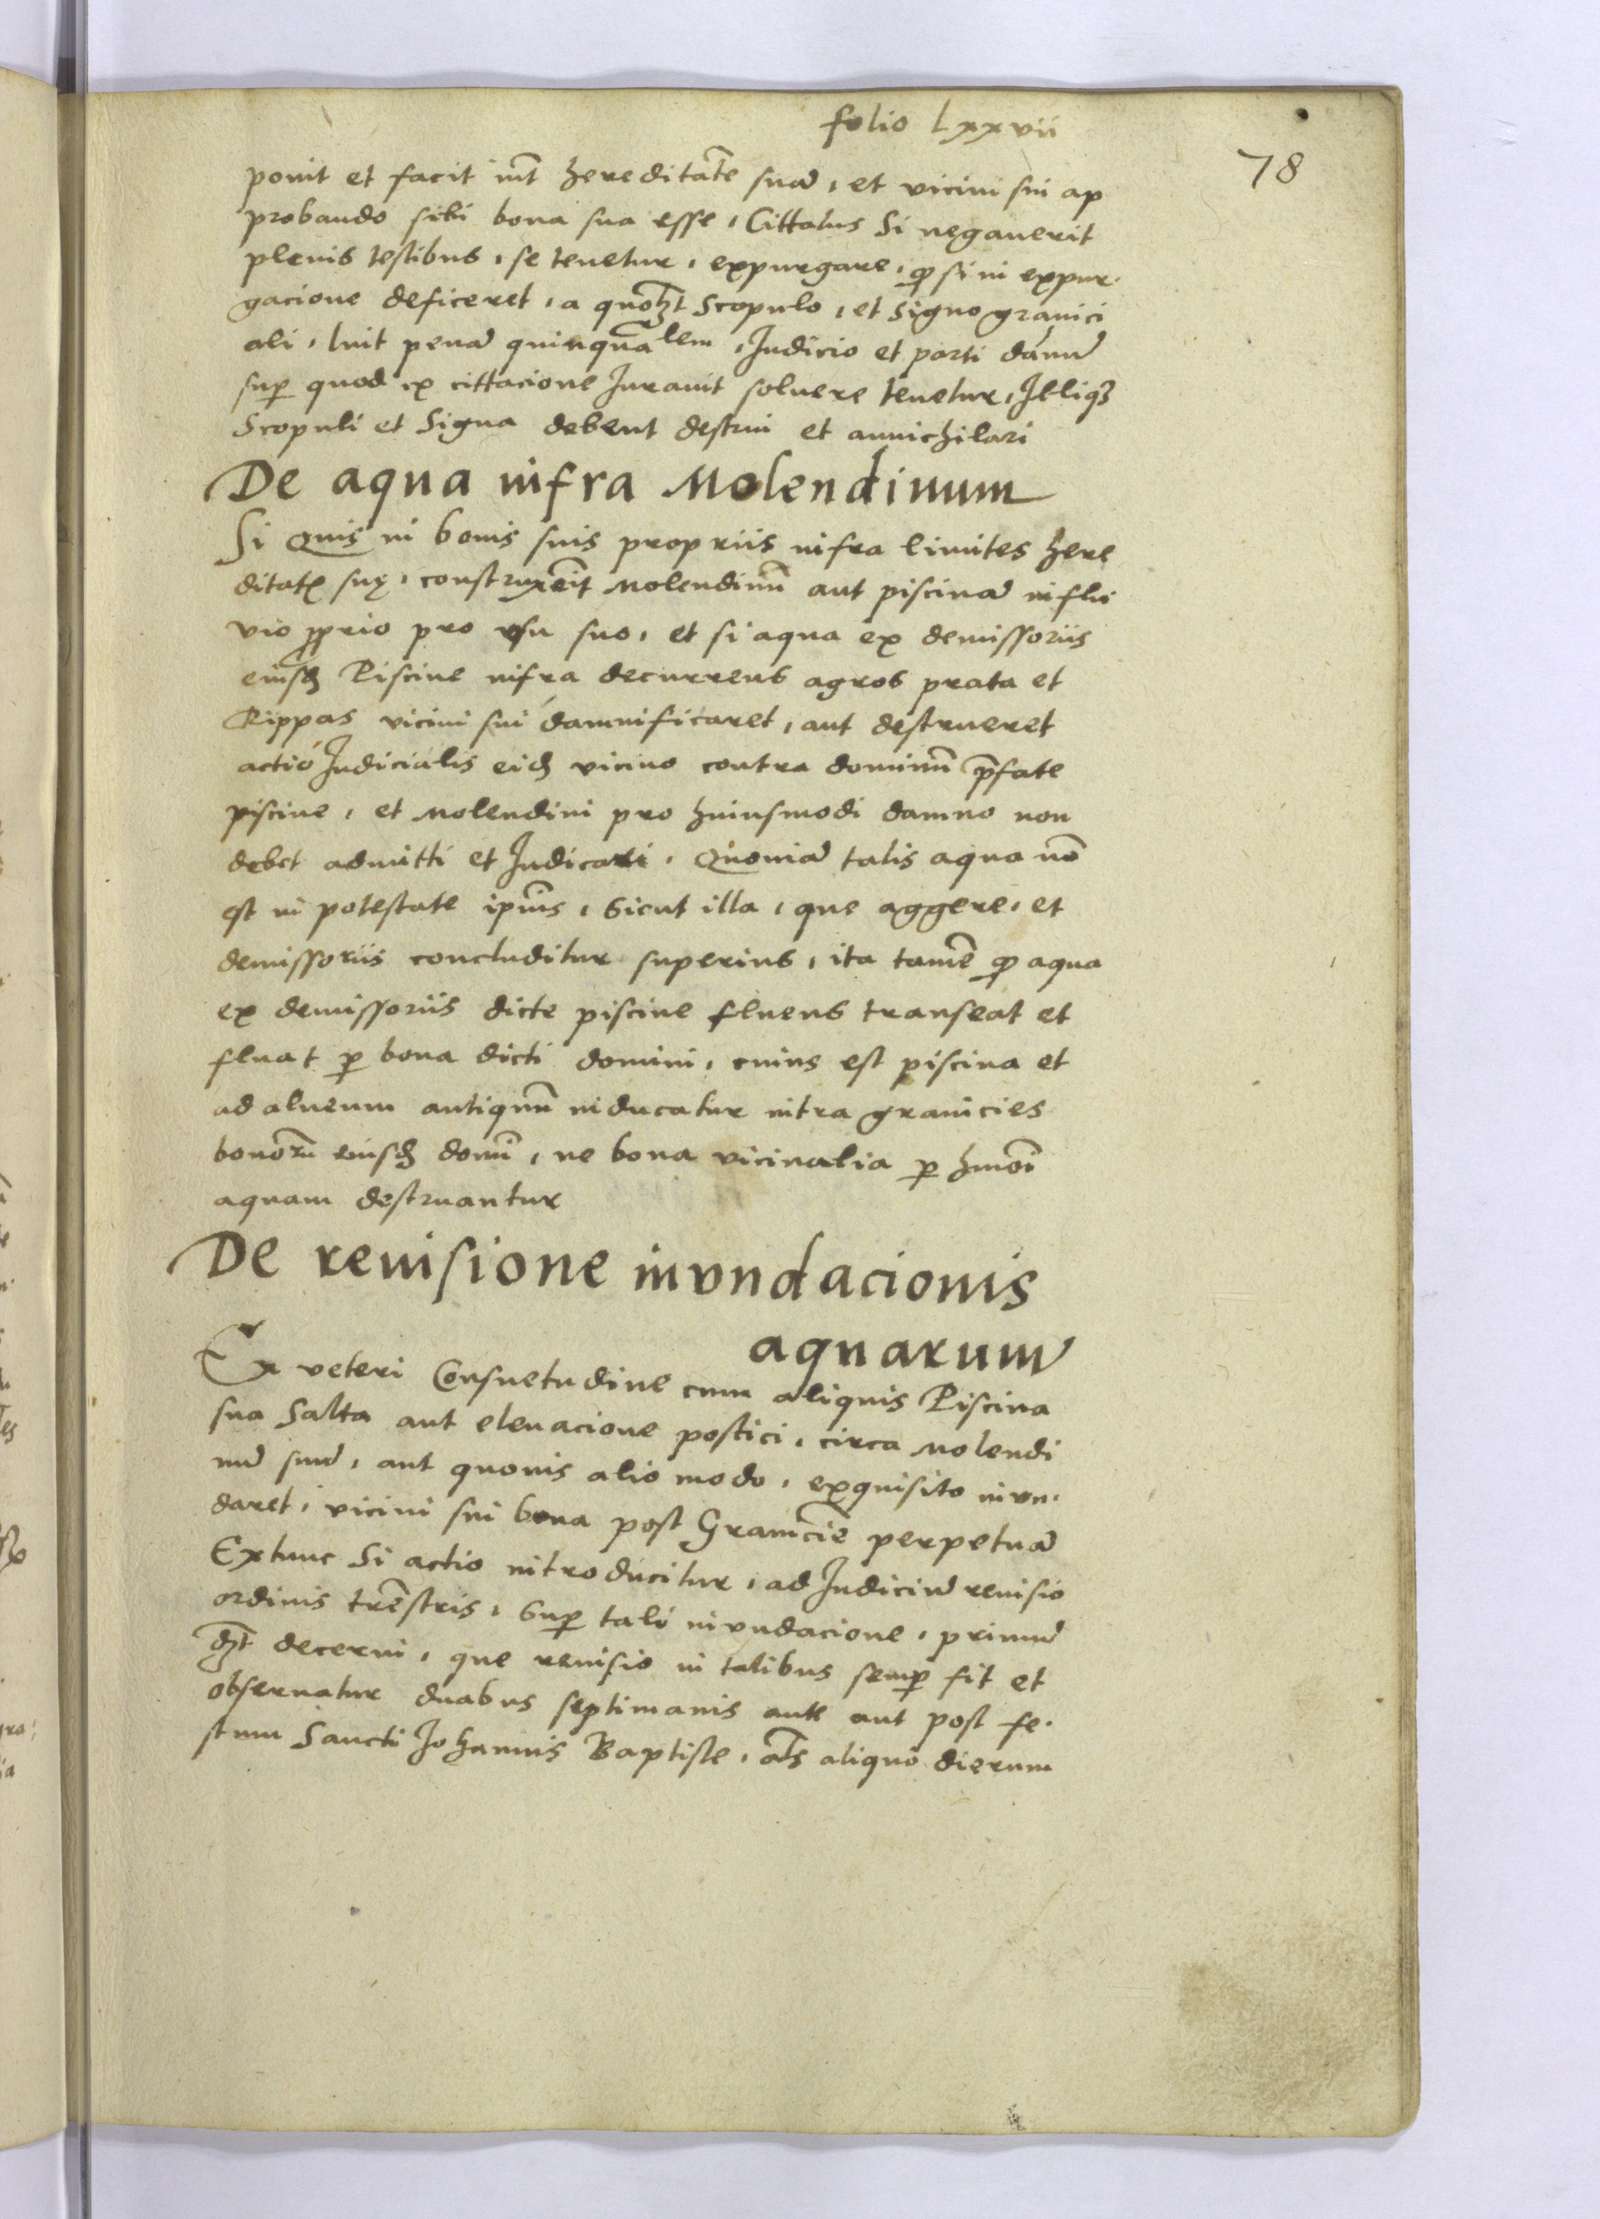 folio Lxxvii
78
ponit et facit int̄ hereditatē suā, et vicini sui ap
probando sibi bona sua esse, Cittatus Si negauerit
plenis testibus, se tenetur, expurgare, ꝙ si in expur-
gacione deficeret, a quotȝt Scopulo, et Signo granici
ali, luit penā quinqua͞lem, Judicio et parti dānū
suꝑ quod ex cittacione Jurauit soluere tenetur, Illiqȝ
Scopuli et Signa debent destrui et annichilari
De aqua infra Molendinum
Si Quis in bonis suis propriis infra limites here
ditatꝭ suę, construxerit Molendinū aut piscinā in flu
vio ꝓprio pro vsu suo, et si aqua ex demissoriis
eiusdē Piscine infra decurrens agros prata et
Rippas vicini sui damnificaret, aut destrueret
actio Judicialis eidē vicino contra dominū p̄fate
piscine, et Molendini pro huiusmodi damno non
debet admitti et Judicari, Quoniā talis aqua nō
est in potestate ipīus, Sicut illa, que aggere, et
demissoriis concluditur superius, ita tamē ꝙ aqua
ex demissoriis dicte piscine fluens transeat et
fluat ꝑ bona dicti domini, cuius est piscina et
ad alueum antiquū inducatur intra granicies
bonorū eiusdē domī, ne bona vicinalia ꝑ hmōi
aquam destruantur
De reuisione invndacionis
aquarum
Ex veteri Consuetudine cum aliquis Piscina
sua Salta aut eleuacione postici, circa Molendi
nū suū, aut quouis alio modo, exquisito invn-
daret, vicini sui bona post Graniciē perpetuā
Extunc Si actio introducitur, ad Judiciū reuisio
ordinis tr̄estris, Suꝑ tali invndacione, primū
dȝt decerni, que reuisio in talibus semꝑ fit et
obseruatur duabus septimanis ante aut post fe-
stum Sancti Johannis Baptiste, al̄s aliquo dierum